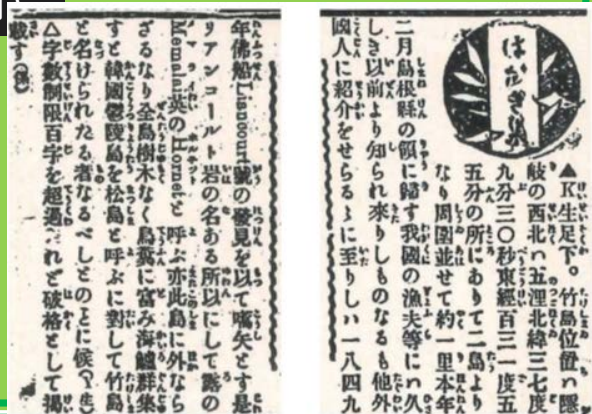 はがき集
▲K生足下。竹島位置ハ隱
岐の西北八五浬北緯三七度
九分三〇秒東經百三一度五
五分の所にありて二島より
なり周圍並せて約一里本年
二月島根縣の領に歸す我國の漁夫等にハ久
しき以前より知られ來りしものなるも他外
國人に紹介をせらるゝに至りしハ一八四九
年佛船Liancourt號の發見を以て嚆矢とす是
リアンコールト岩の名ある所以にして露の
Menalai英のHornetと呼ぶ亦此島に外なら
ざるなり全島樹木なく鳥糞に富み海鱸群集
すと韓國鬱陵島を松島と呼ぶに對して竹島
と名けられたる者なるべしとのことに候
△字數制限百字を超過れど破格として揭
載す(係)